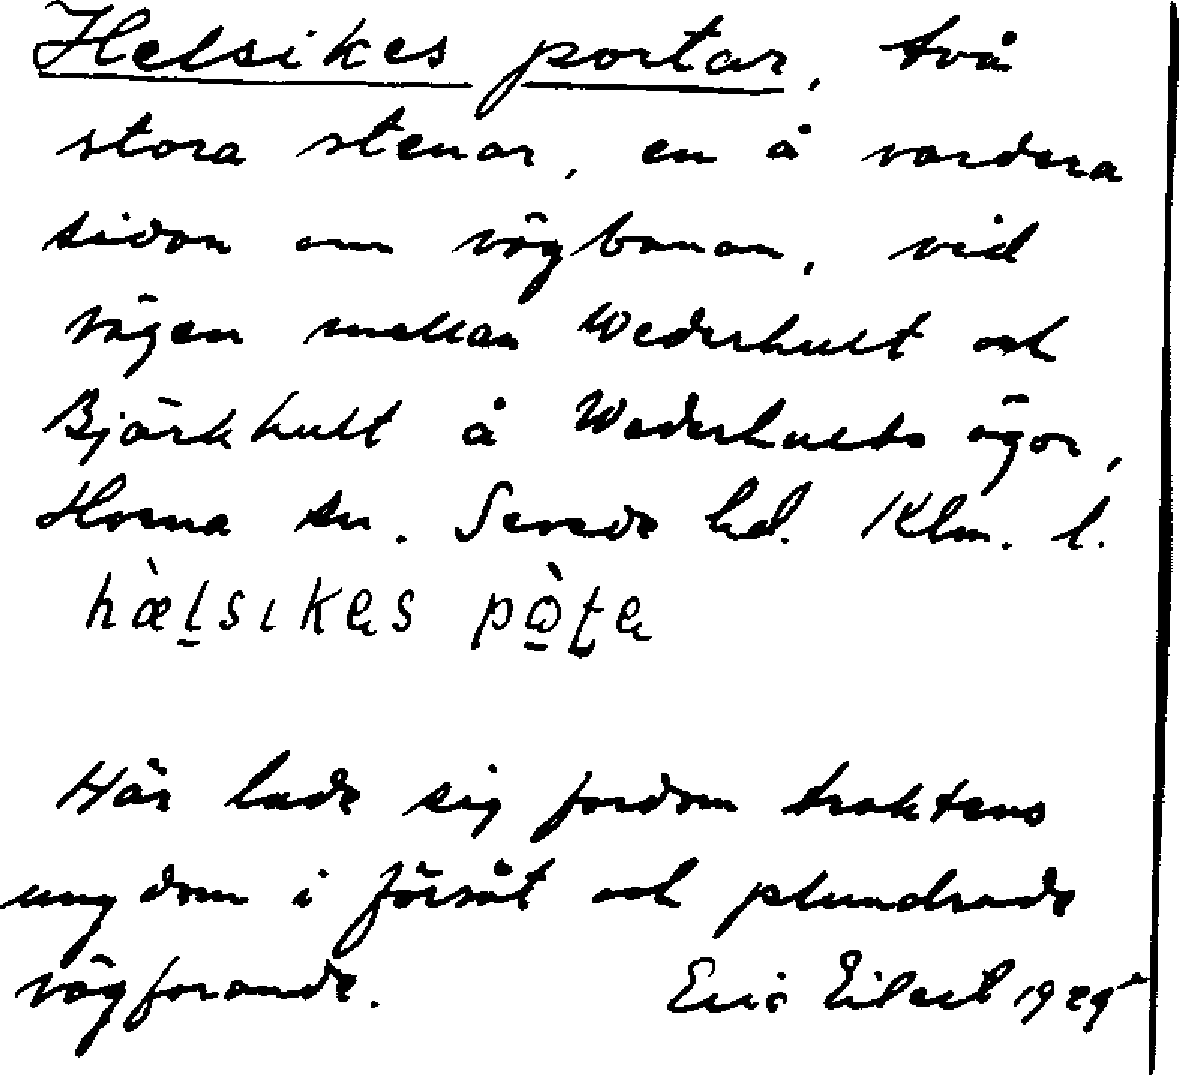 Helsikes portar, två
stora stenar, en å vardera
sidan om vägbanan, vid
vägen mellan Wederhult och
Björkhult å Wederhults ägor,
Horna sn. Sevede hd. Klm. l.
hæ̀l̠sıkes pò̠te
Här lade sig fordom traktens
ungdom i försåt och plundrade
vägfarande. Eric Eilert 1929